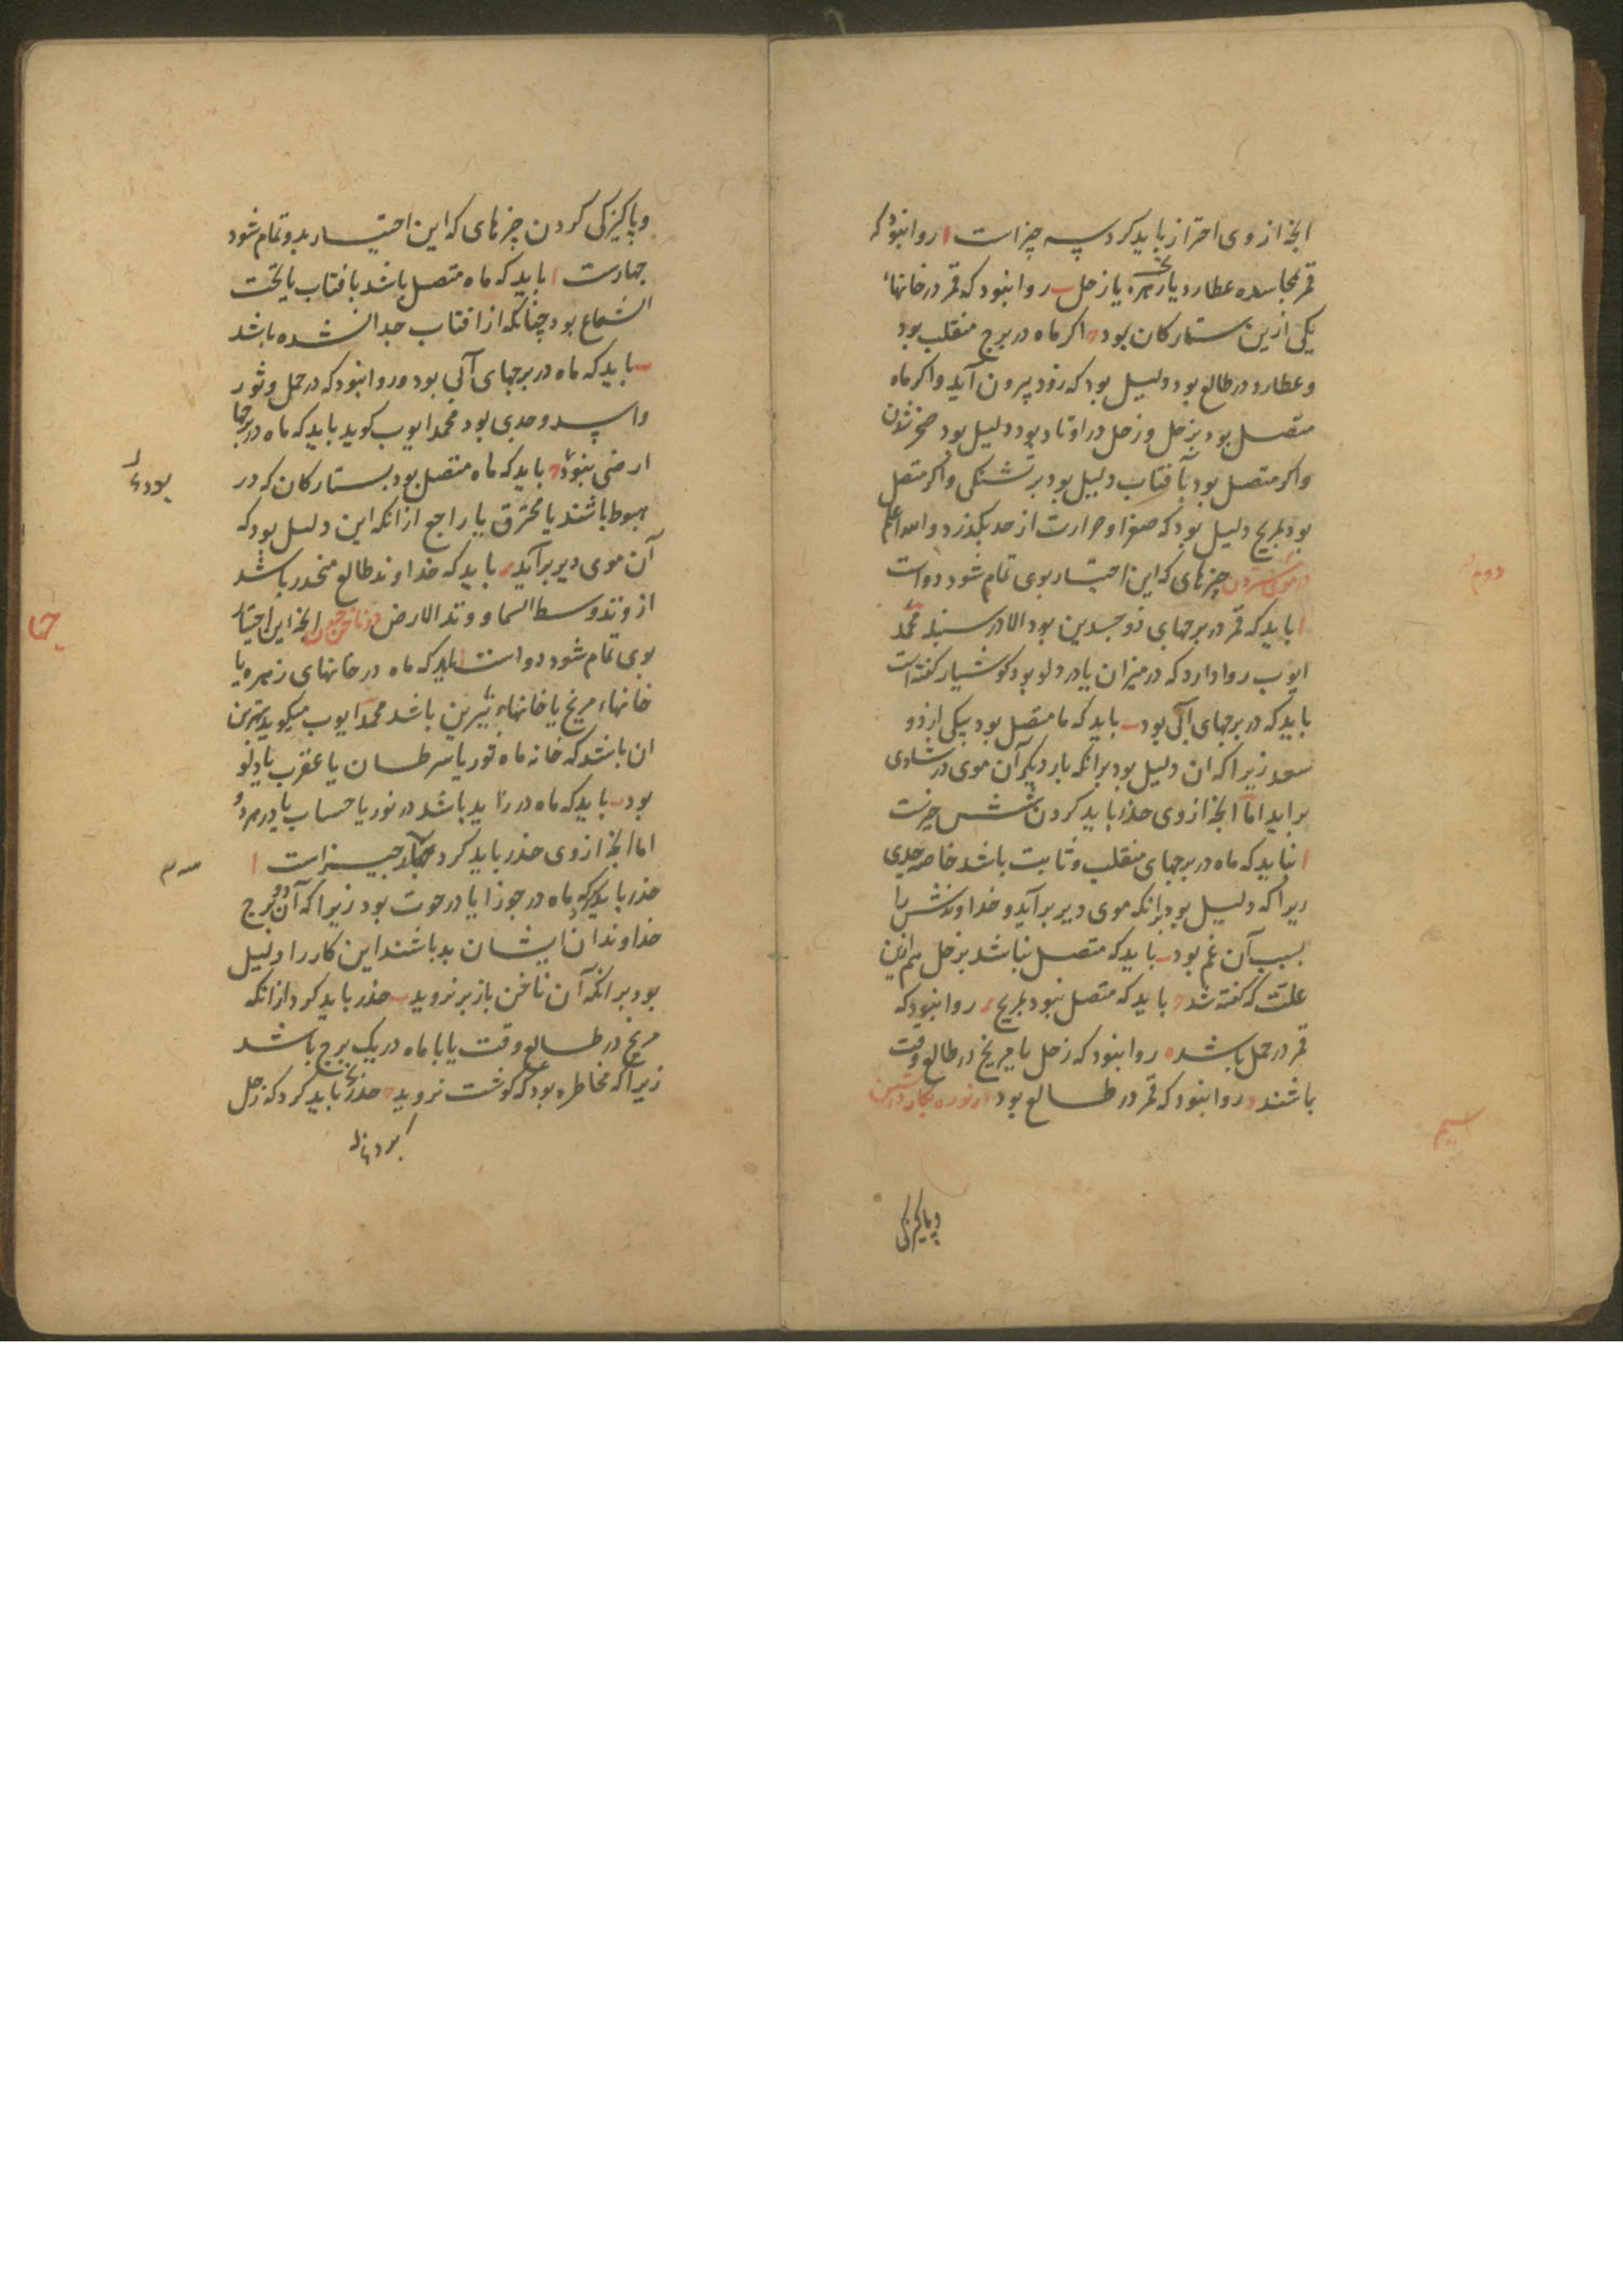 انخ از وی احتراز باید کرد سه چیز است ا روا نبود که
قمر بمجاسده عطارد یا زهره یا زحل ب روا نبود که قمر در خانها
یکی ازین ستارکان بود اکر ماه در برج منقلب بود
و عطارد در طالع بود دلیل بود که زود بیرون آید و اکر ماه
متصل بود بزحل و زحل در اوتاد بود دلیل بود
واکر متصل بود بآفتاب دلیل بود بر تشنکی و اکر متصل
بود بمریخ دلیل بود که صفرا و حرارت از حد بکذرد والله اعلم
در موی ستردن چیزهای که این اختیار بوی تمام شود دو است
ا باید که قمر در برجهای ذو جسدین بود الا در سنبله محمد
ایوب روا دارد که در میزان یا در دلو بود کوشیار کفته است
باید که در برجهای آبی بود ب باید که ما متصل بود بیکی از دو
سعد زیرا که ان دلیل بود برانکه بار دیکر آن موی در شادی
براید اما انخ از وی حذر باید کردن شش چیزست
ا نباید که ماه در برجهای منقلب و ثابت باشد خاصه جدی
زیرا که دلیل بود برانکه موی دیر برآید و خداوندش را
بسبب آن غم بود ب باید که متصل نباشد بزحل هم ازین
علت که کفته شد باید که متصل نبود بمریخ روا نبود که
قمر در حمل باشد ه روا نبود که زحل یا مریخ در طالع وقت
باشند و روا نبود که قمر در طالع بود در نوره بکار داشتن
دوم
سیم
وپاکیزکی
وپاکیزکی کردن چیزهای که این اختیار بدو تمام شود
چهارست ا باید که ماه متصل باشد بافتاب یا تحت
الشعاع بود چنانکه از افتاب جدا شده باشد
ب باید که ماه در برجهای آبی بود و روا نبود که در حمل و ثور
و اسد و جدی بود محمد ایوب کوید باید که ماه در برجها
ارضی نبود باید که ماه متصل بود بستارکان که در
هبوط باشند یا محترق یا راجع ازانکه این دلیل بود که
آن موی دیر برآید باید که خداوند طالع منحدر باشد
از وتد وسط السما و وتد الارض در ناخن چیدن انخ این اختیار
بوی تمام شود دو است ا باید که ماه در خانهای زهره یا
خانهاء مریخ یا خانهاء نیرین باشد محمد ایوب میکوید بهترین
ان باشد که خانه ماه ثور یا سرطان یا عقرب یا دلو
بود ب باید که ماه در زاید باشد در نور یا حساب یا در هر دو
اما انخ از وی حذر باید کرد چیز است ا
حذر باید که ماه در جوزا یا در حوت بود زیرا که آن دو برج
خداوندان ایشان بد باشند این کار را دلیل
بود برانکه آن ناخن باز بر نروید ب حذر باید کرد ازانکه
مریخ در طالع وقت یا با ماه در یک برج باشد
زیرا که مخاطره بود که کوشت نروید حذر باید کرد که زحل